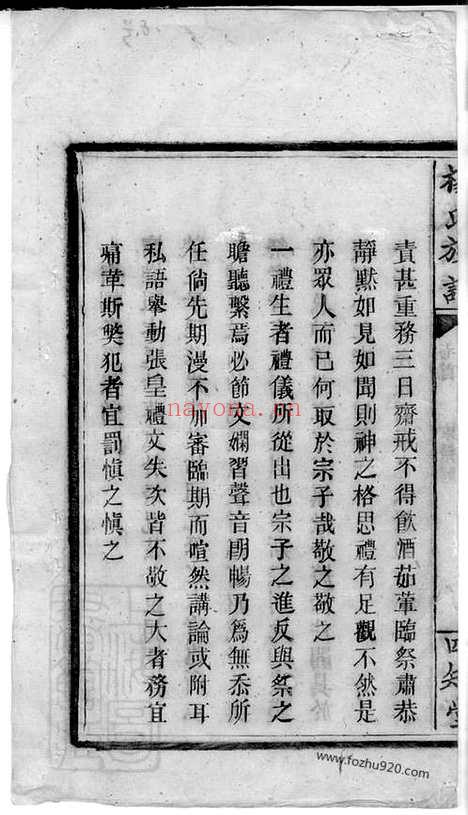 楊氏族譜
四知堂
責甚重務三日齋戒不得飲酒茹葷臨祭肅恭
靜默如見如聞則神之格思禮有足觀不然是
亦眾人而已何取於宗子哉敬之敬之
一禮生者禮儀所從出也宗子之進反與祭之
瞻聽繫焉必節文嫻習聲音明暢乃為無忝所
任倘先期漫不加審臨期而喧然講論或附耳
私語舉動張皇禮文失次皆不敬之大者務宜
痛革斯獘犯者宜罰慎之慎之
nayona.cn
www.fozhu920.com